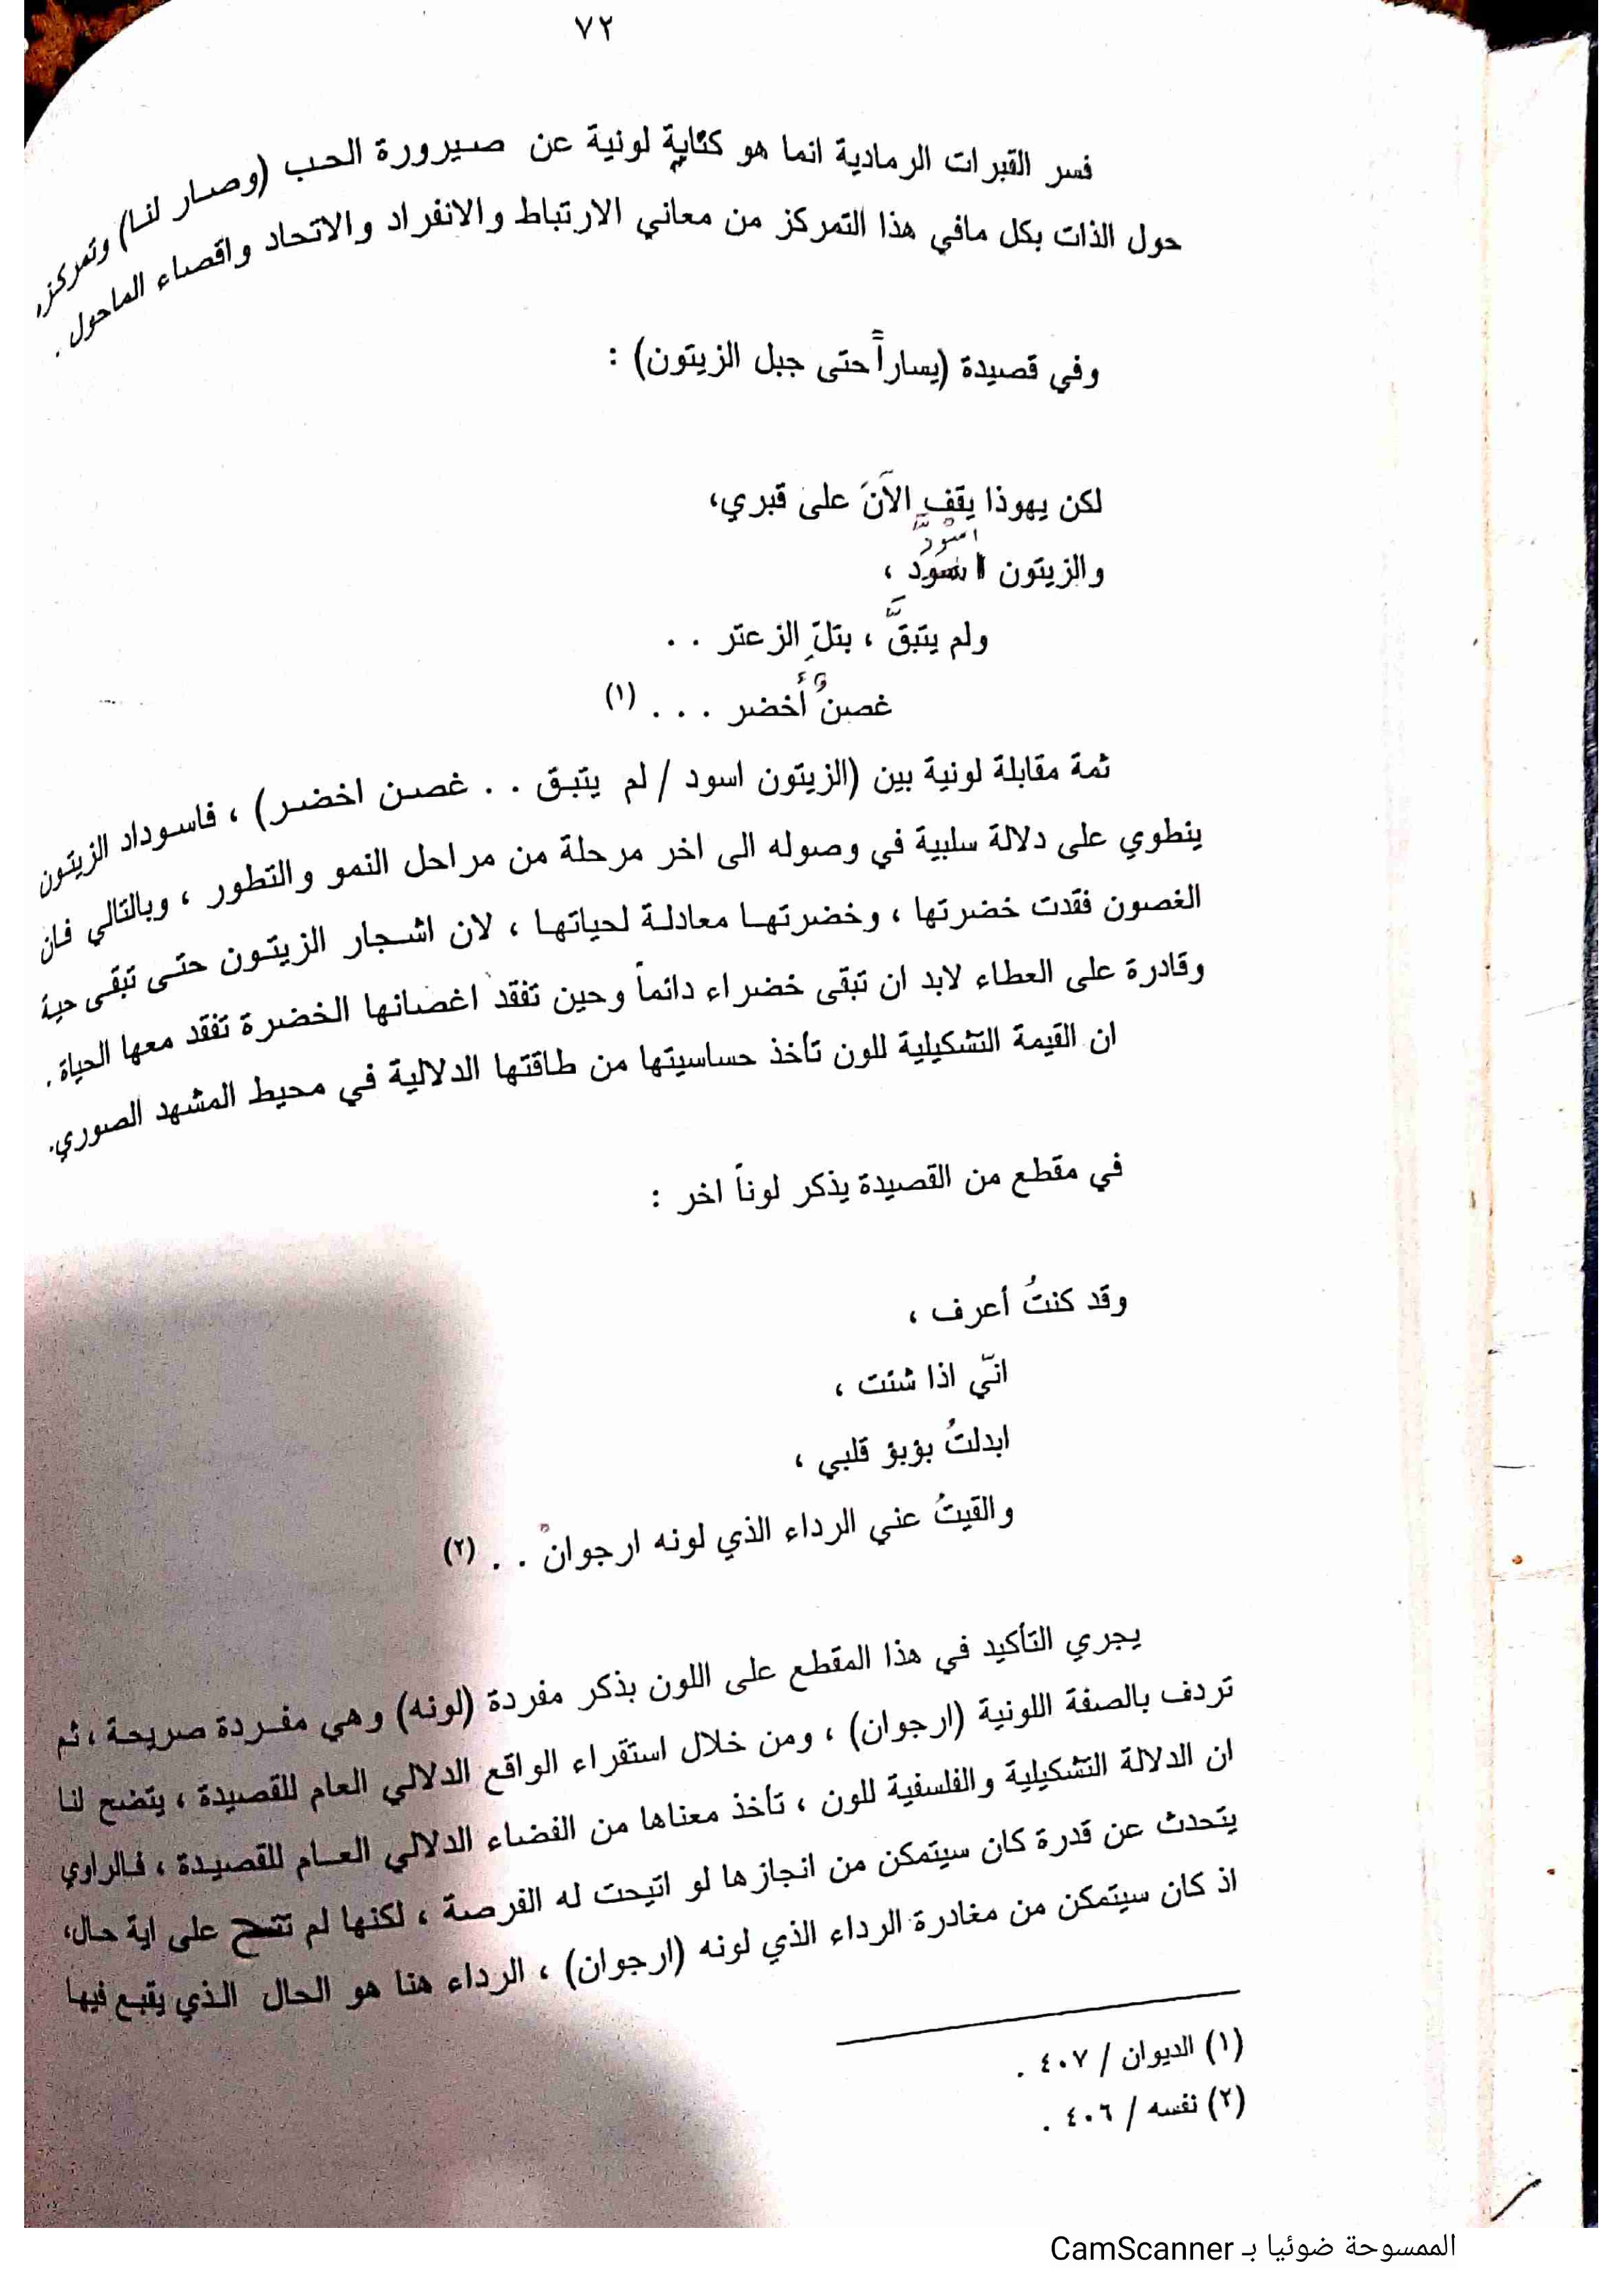 ٧٢
فسر القبرات الرمادية انما هو كناية لونية عن صيرورة الحب (وصار لنا) وتمركزه
حول الذات بكل مافي هذا التمركز من معاني الارتباط والانفراد والاتحاد واقصاء الماحول .
وفي قصيدة (يساراً حتى جبل الزيتون) :
لكن يهوذا يقف الآنَ على قبري،
اسْودَّ
والزيتون اسود ،
ولم يتبقَّ ، بتلِّ الزعتر . .
غصنٌ أخضر . . . (١)
ثمة مقابلة لونية بين (الزيتون اسود / لم يتبق . . غصن اخضر) ، فاسوداد الزيتون
ينطوي على دلالة سلبية في وصوله الى اخر مرحلة من مراحل النمو والتطور ، وبالتالي فان
الغصون فقدت خضرتها ، وخضرتها معادلة لحياتها ، لان اشجار الزيتون حتى تبقى حية
وقادرة على العطاء لابد ان تبقى خضراء دائماً وحين تفقد اغصانها الخضرة تفقد معها الحياة .
ان القيمة التشكيلية للون تأخذ حساسيتها من طاقتها الدلالية في محيط المشهد الصوري.
في مقطع من القصيدة يذكر لوناً اخر :
وقد كنتُ أعرف ،
انّي اذا شئت ،
ابدلتُ بؤبؤ قلبي ،
والقيتُ عني الرداء الذي لونه ارجوانْ . . (٢)
يجري التأكيد في هذا المقطع على اللون بذكر مفردة (لونه) وهي مفردة صريحة ، ثم
تردف بالصفة اللونية (ارجوان) ، ومن خلال استقراء الواقع الدلالي العام للقصيدة ، يتضح لنا
ان الدلالة التشكيلية والفلسفية للون ، تأخذ معناها من الفضاء الدلالي العام للقصيدة ، فالراوي
يتحدث عن قدرة كان سيتمكن من انجازها لو اتيحت له الفرصة ، لكنها لم تتح على اية حال،
اذ كان سيتمكن من مغادرة الرداء الذي لونه (ارجوان) ، الرداء هنا هو الحال الذي يقبع فيها
(١) الديوان / ٤٠٧ .
(٢) نفسه / ٤٠٦ .
الممسوحة ضوئيا بـ CamScanner